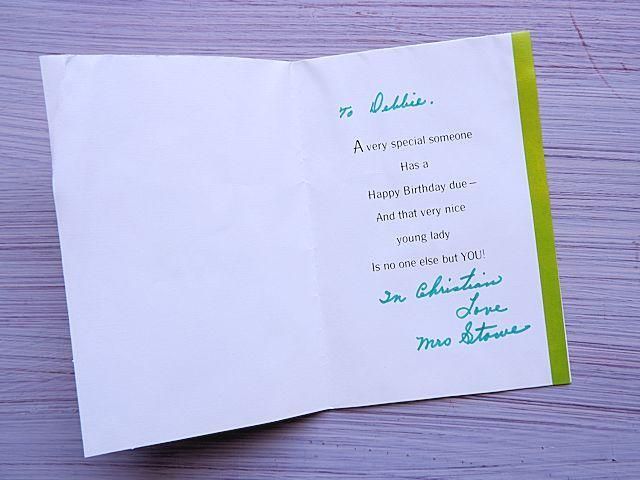 To Debbie.
A very special someone
Has a
Happy Birthday due—
And that very nice
young lady
Is no one else but YOU!
In Christian
Love
Mrs Stowe